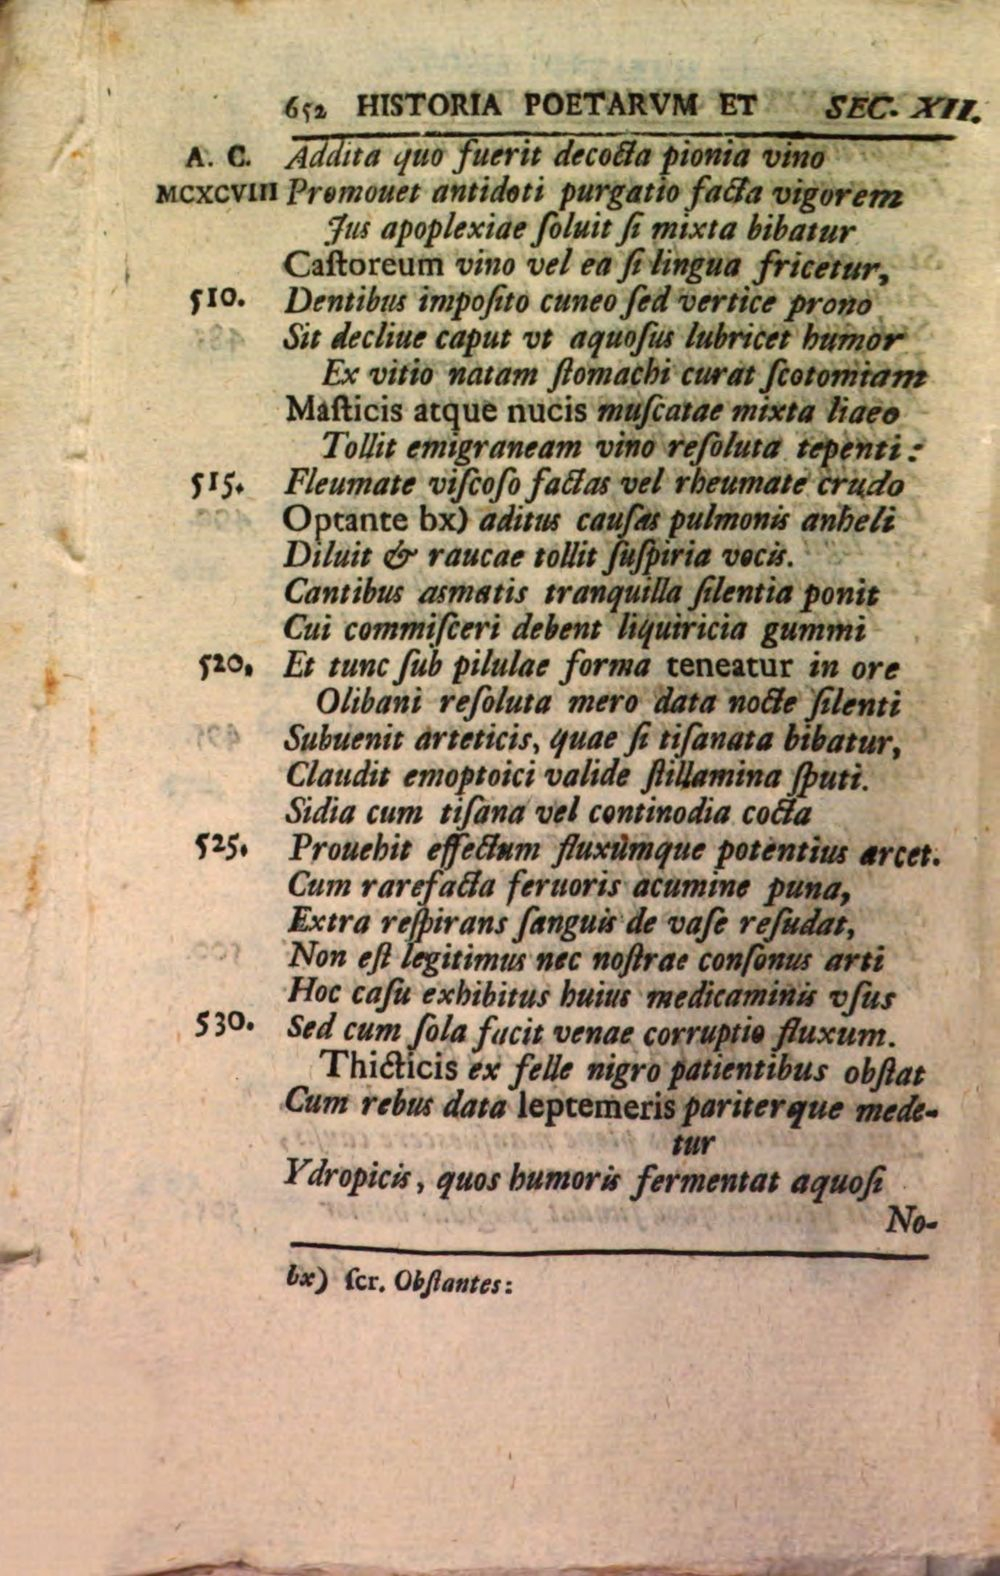 652 HISTORIA POETARVM ET SEC. XII.
A. C. Addita quo fuerit decocta pionia vino
MCXCVIII Promouet antidoti purgatio facta vigorem
Jus apoplexiae ſoluit ſi mixta bibatur
Caſtoreum vino vel ea ſi lingua fricetur,
510. Dentibus impoſito cuneo ſed vertice prono
Sit decliue caput vt aquoſus lubricet humor
Ex vitio natam ſtomachi curat ſcotomiam
Maſticis atque nucis muſcatae mixta liaeo
Tollit emigraneam vino reſoluta tepenti:
515. Fleumate viſcoſo factas vel rheumate crudo
Optante bx) aditus cauſas pulmonis anheli
Diluit & raucae tollit ſuſpiria vocis.
Cantibus asmatis tranquilla ſilentia ponit
Cui commiſceri debent liquiricia gummi
520. Et tunc ſub pilulae forma teneatur in ore
Olibani reſoluta mero data nocte ſilenti
Subuenit arteticis, quae ſi tiſanata bibatur,
Claudit emoptoici valide ſtillamina ſputi.
Sidia cum tiſana vel continodia cocta
525. Prouehit effectum fluxùmque potentius arcet.
Cum rarefacta feruoris acumine puna,
Extra reſpirans ſanguis de vaſe reſudat,
Non eſt legitimus nec noſtrae conſonus arti
Hoc caſu exhibitus huius medicaminis vſus
530. Sed cum ſola facit venae corruptio fluxum.
Thicticis ex felle nigro patientibus obſtat
Cum rebus data leptemeris pariterque mede-
tur
Ydropicis, quos humoris fermentat aquoſi
No-
bx) ſcr. Obſtantes: